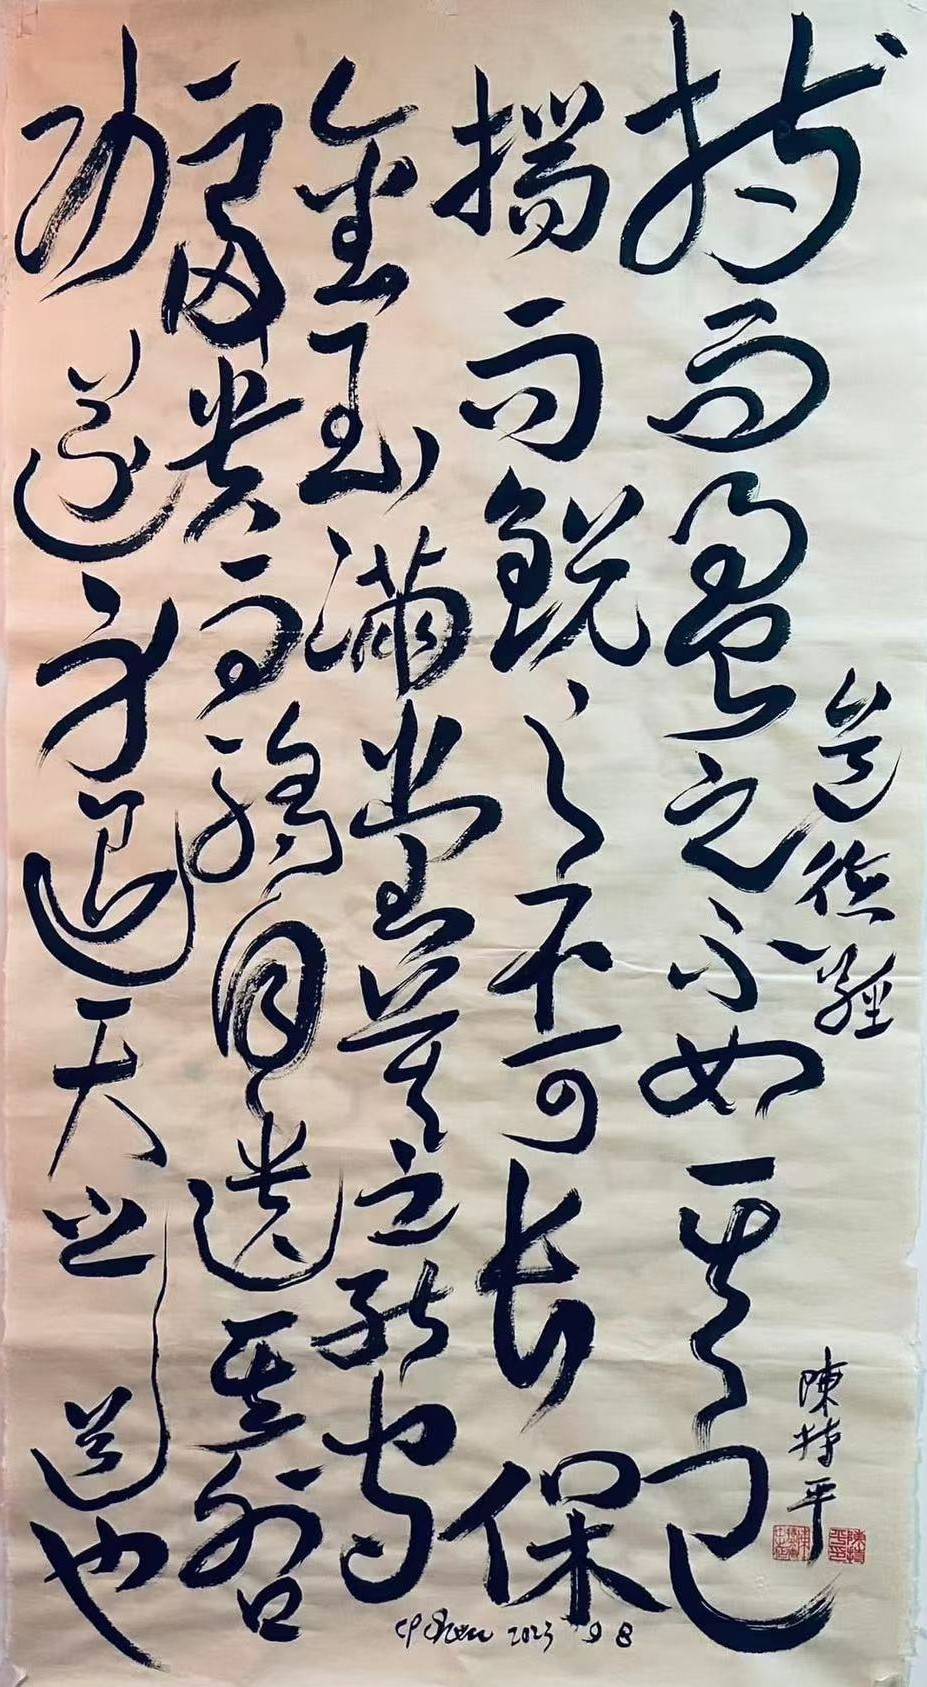 道德經
陳持平
持而盈之不如其已
揣而銳之不可长保
金玉滿堂莫之能守
富貴而驕自遺其咎
功遂身退天之道也
CP Chen 2023 9 8